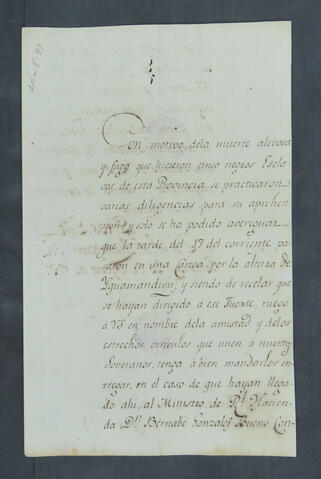 Con motivo dela muerte alevosa
y fuga que hicieron cinco negros Escla-
vos de esta Provincia, se practicaron
varias diligencias para su aprehen-
sion, y solo se ha podido averiguar
que la tarde del 17 del corriente pa-
saron en una Canoa por la altura de
Yquamandiyu; y siendo de recelar que
se hayan dirigido a ese Fuerte, ruego
a VS en nombre dela amistad y delos
estrechos vinculos que unen a nuestros
Soveranos, tenga à bien mandarlos en-
tregar, en el caso de que hayan llega-
do ahi, al Ministro de Rl. Hacien-
da Dn. Bernabe Gonzalez Bueno Con-